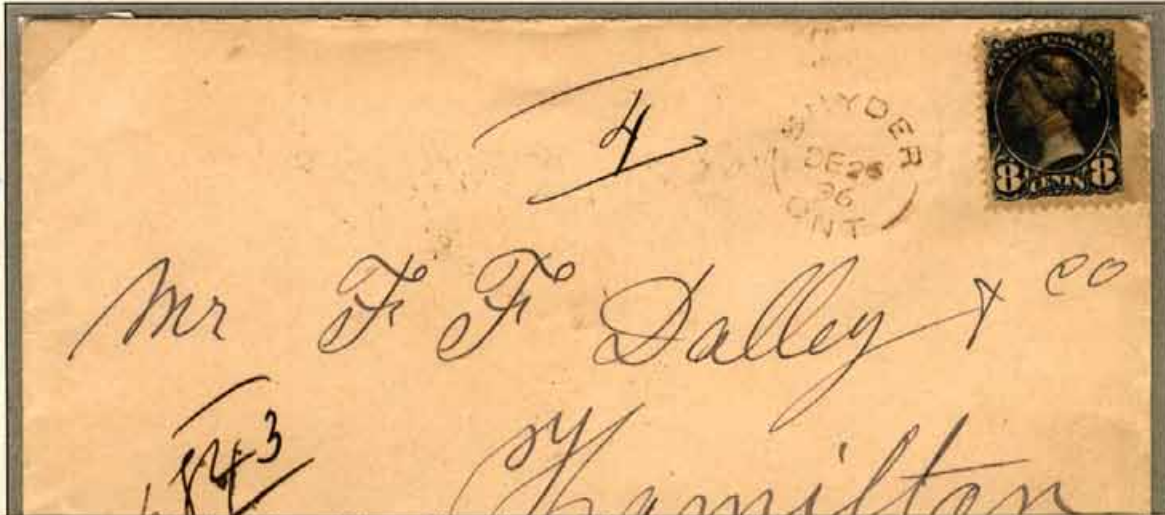 4
SNYDER
DE 26
96
ONT
CANADA POSTAGE
8 CENTS 8
Mr F F Dalley & co
843
Hamilton